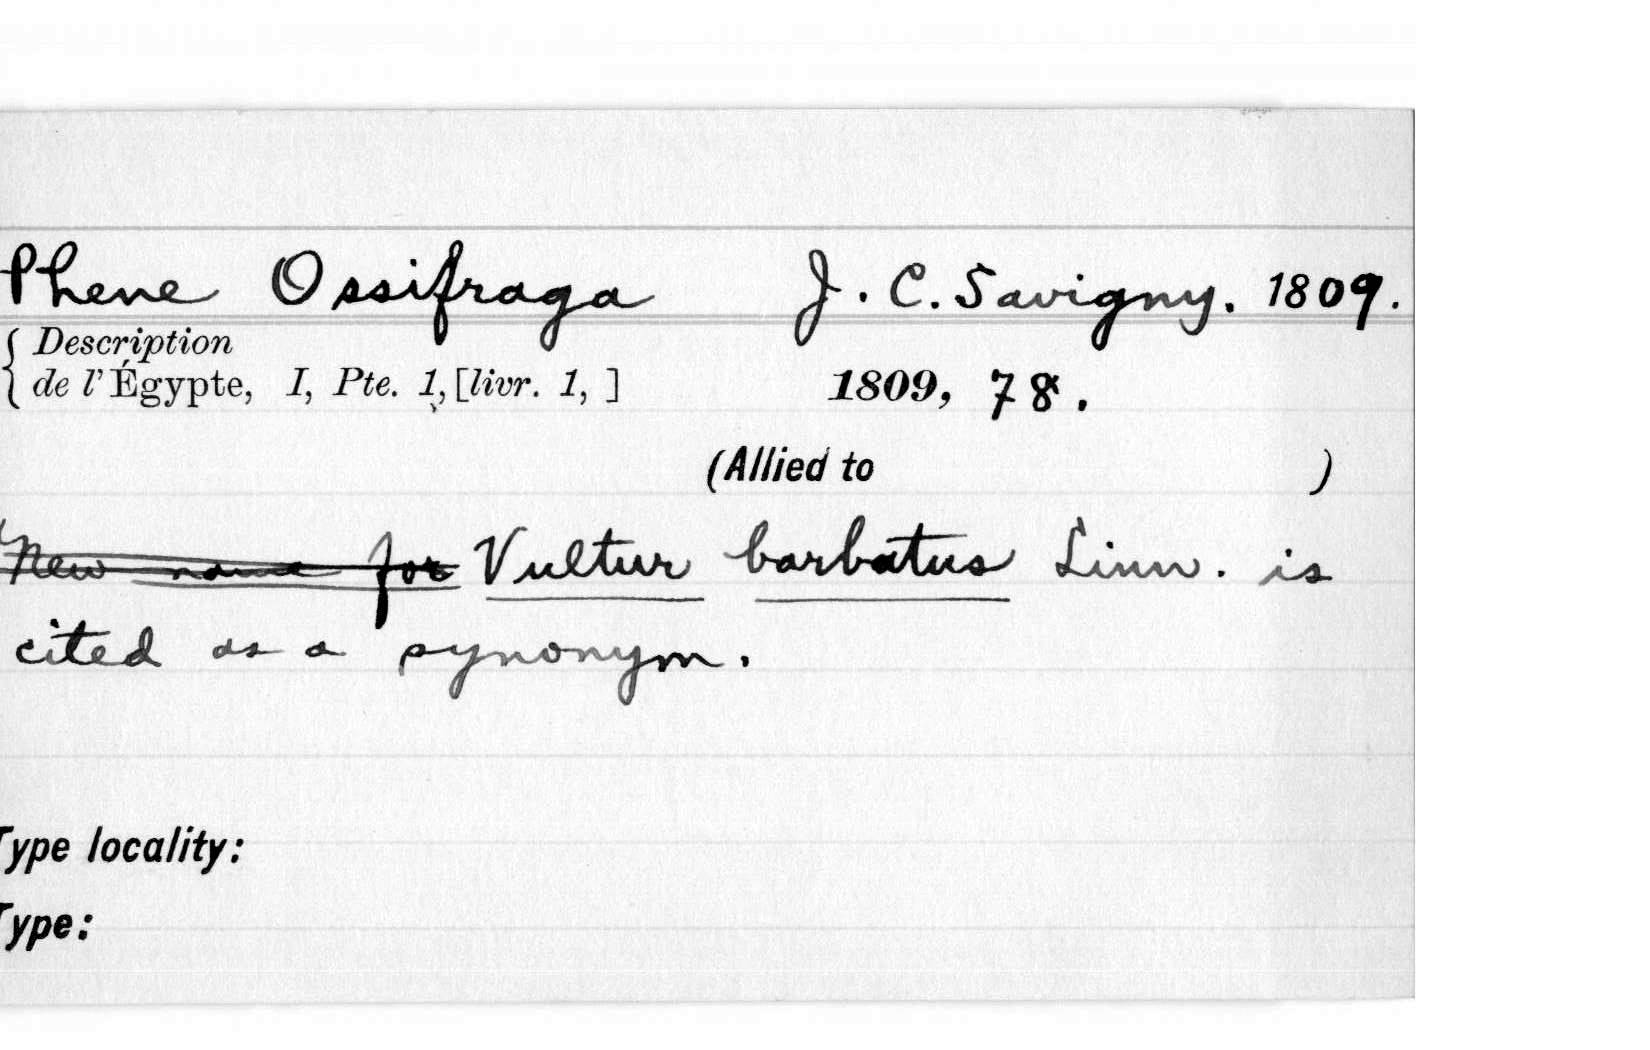 Phene Ossifraga J. C. Savigny. 1809.
Description
de l'Égypte, I, Pte. 1, [livr. 1, ] 1809, 78.
(Allied to )
New name for Vultur barbatus Linn. is
cited as a synonym.
Type locality:
Type: